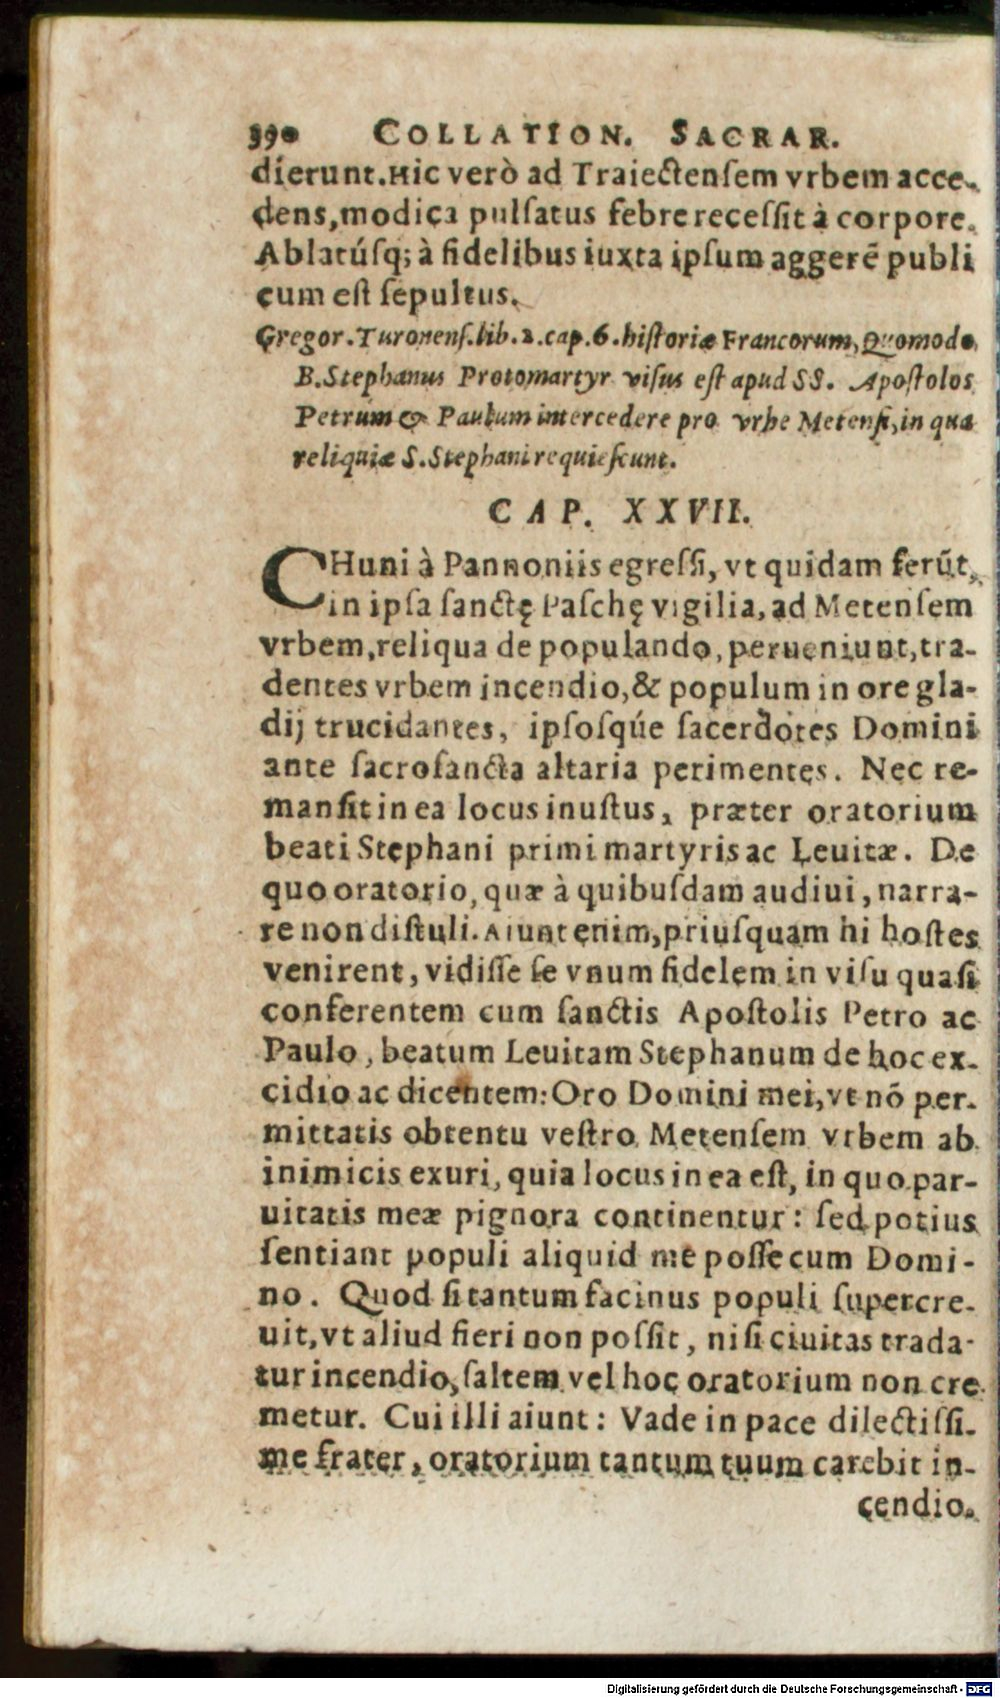 390 COLLATION. SACRAR.
dierunt. Hic verò ad Traiectenſem vrbem acce-
dens, modica pulſatus febre receſſit à corpore.
Ablatúſq; à fidelibus iuxta ipſum aggerẽ publi
cum eſt ſepultus.
Gregor. Turonenſ. lib. 2. cap. 6. hiſtoriæ Francorum, Quomodo
B. Stephanus Protomartyr viſus eſt apud SS. Apoſtolos
Petrum & Paulum intercedere pro vrbe Metenſi, in qua
reliquiæ S. Stephani requieſcunt.
CAP. XXVII.
CHuni à Pannoniis egreſſi, vt quidam ferũt,
in ipſa ſanctę Paſchę vigilia, ad Metenſem
vrbem, reliqua depopulando, perueniunt, tra-
dentes vrbem incendio, & populum in ore gla-
dij trucidantes, ipſoſqúe ſacerdotes Domini
ante ſacroſancta altaria perimentes. Nec re-
manſit in ea locus inuſtus, præter oratorium
beati Stephani primi martyris ac Leuitæ. De
quo oratorio, quæ à quibuſdam audiui, narra-
re non diſtuli. Aiunt enim, priuſquam hi hoſtes
venirent, vidiſſe ſe vnum fidelem in viſu quaſi
conferentem cum ſanctis Apoſtolis Petro ac
Paulo, beatum Leuitam Stephanum de hoc ex-
cidio ac dicentem: Oro Domini mei, vt nõ per-
mittatis obtentu veſtro Metenſem vrbem ab
inimicis exuri, quia locus in ea eſt, in quo par-
uitatis meæ pignora continentur: ſed potius
ſentiant populi aliquid me poſſe cum Domi-
no. Quod ſi tantum facinus populi ſupercre-
uit, vt aliud fieri non poſſit, niſi ciuitas trada-
tur incendio, ſaltem vel hoc oratorium non cre-
metur. Cui illi aiunt: Vade in pace dilectiſſi-
me frater, oratorium tantum tuum carebit in-
cendio.
Digitalisierung gefördert durch die Deutsche Forschungsgemeinschaft - DFG